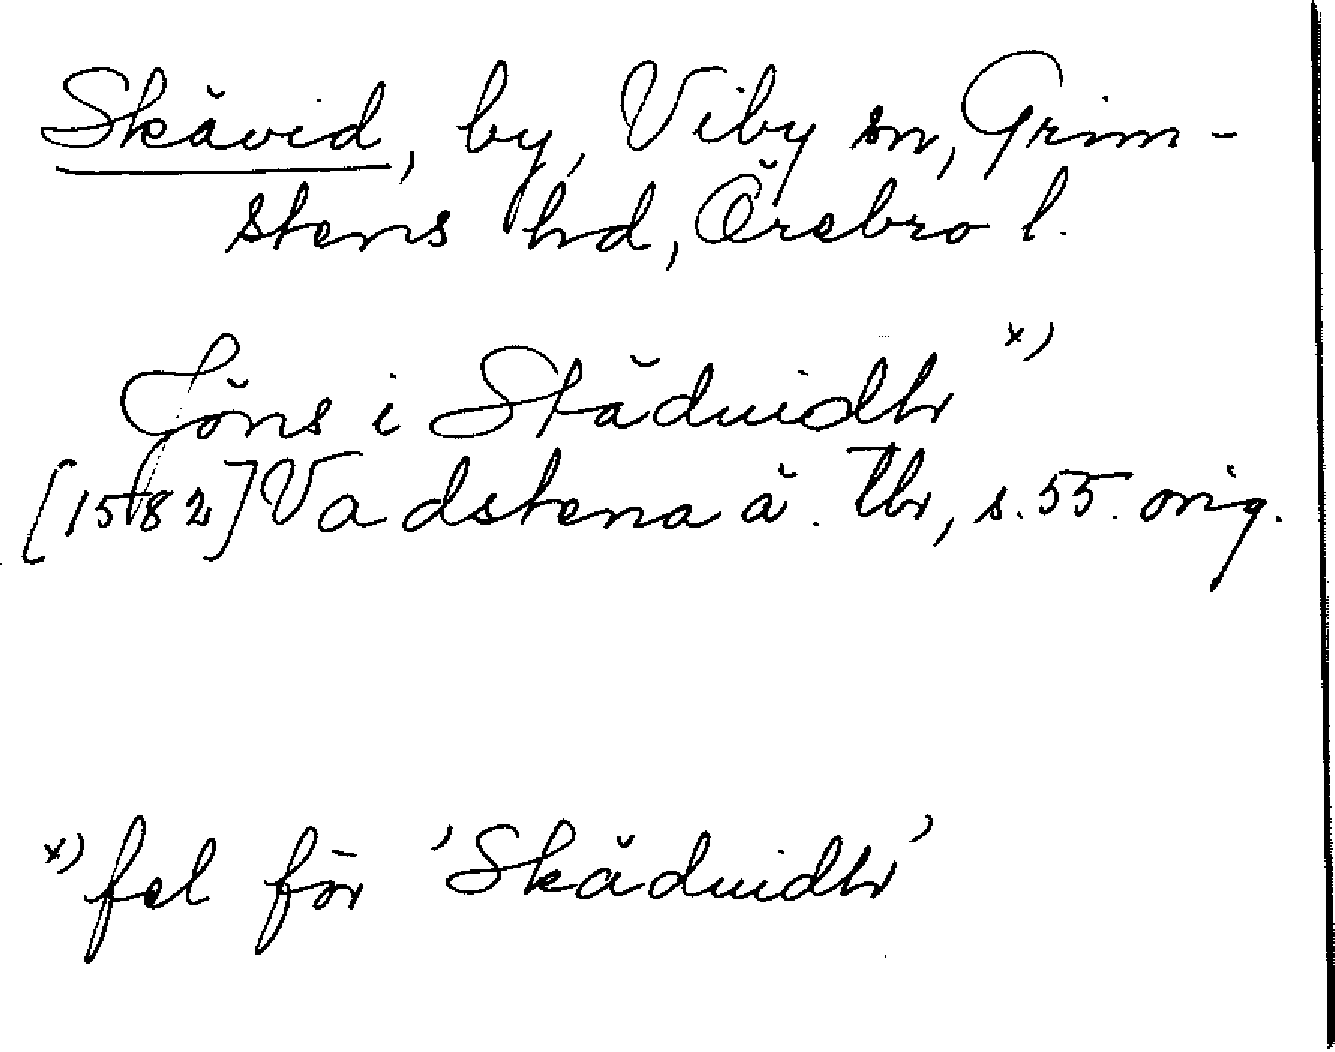 Skävid, by, Viby sn, Grim-
stens hd, Örebro l.
Jöns i Städuidh x)
[1582] Vadstena ä. Tb, s. 55. orig.
x) fel för 'Skäduidh'